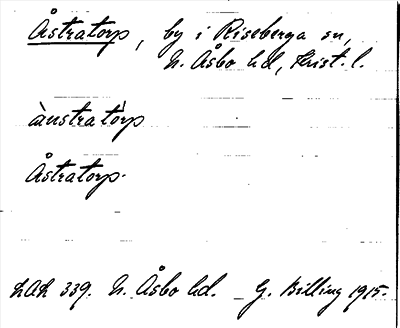 Åstratorp, by i Riseberga sn,
N. Åsbo hd, Krist. l.
àustratå̀rp
Åstratorp.
LAL 339. N. Åsbo hd. G. Billing 1915.